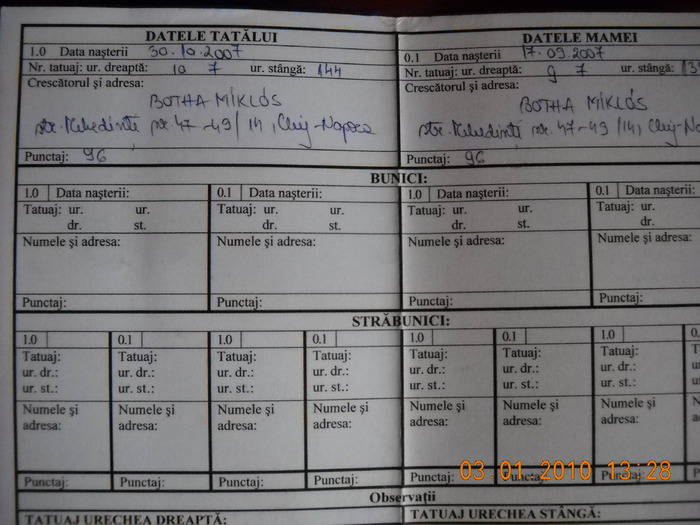 DATELE TATĂLUI
1.0 Data nașterii 30.10.2007
Nr. tatuaj: ur. dreaptă: 10 7 ur. stângă: 144
Crescătorul și adresa:
BOTHA MIKLÓS
str. Mehedinti nr. 47-49/14, Cluj-Napoca
Punctaj: 96
DATELE MAMEI
0.1 Data nașterii 17.09.2007
Nr. tatuaj: ur. dreaptă: 9 7 ur. stângă:
Crescătorul și adresa:
BOTHA MIKLÓS
str. Mehedinti nr. 47-49/14, Cluj-
Punctaj: 96
BUNICI:
1.0 Data nașterii: 0.1 Data nașterii: 1.0 Data nașterii: 0.1 Data nașterii:
Tatuaj: ur. ur. Tatuaj: ur. ur. Tatuaj: ur. ur. Tatuaj: ur.
dr. st. dr. st. dr. st. dr.
Numele și adresa: Numele și adresa: Numele și adresa: Numele și adresa:
Punctaj: Punctaj: Punctaj: Punctaj:
STRĂBUNICI:
1.0 0.1 1.0 0.1 1.0 0.1 1.0
Tatuaj: Tatuaj: Tatuaj: Tatuaj: Tatuaj: Tatuaj: Tatuaj:
ur. dr.: ur. dr.: ur. dr.: ur. dr.: ur. dr.: ur. dr.: ur. dr.:
ur. st.: ur. st.: ur. st.: ur. st.: ur. st.: ur. st.: ur. st.:
Numele și Numele și Numele și Numele și Numele și Numele și Numele și
adresa: adresa: adresa: adresa: adresa: adresa: adresa:
Punctaj: Punctaj: Punctaj: Punctaj: Punctaj: Punctaj: Punctaj:
03 01 2010 13:28
Observații
TATUAJ URECHEA DREAPTĂ: TATUAJ URECHEA STÂNGĂ: